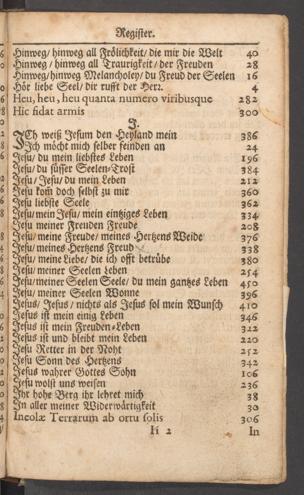 Register.
Hinweg/ hinweg all Frölichkeit/ die mir die Welt 40
Hinweg/ hinweg all Traurigkeit/ der Freuden 28
Hinweg/ hinweg Melancholey/ du Freud der Seelen 16
Hör liebe Seel/ dir rufft der Herr. 4
Heu, heu, heu quanta numero viribusque 282
Hic fidat armis 300
J.
JCh weiß Jesum den Heyland mein 386
Jch möcht mich selber feinden an 24
Jesu/ du mein liebstes Leben 196
Jesu/ du süsser Seelen-Trost 384
Jesu/ Jesu/ du mein Leben 212
Jesu kom doch selbst zu mir 360
Jesu liebste Seele 362
Jesu/ mein Jesu/ mein eintziges Leben 334
Jesu meiner Freuden Freude 208
Jesu/ meine Freude/ meines Hertzens Weide 376
Jesu/ meines Hertzens Freud 338
Jesu/ meine Liebe/ die ich offt betrübe 380
Jesu/ meiner Seelen Leben 254
Jesu/ meiner Seelen Seele/ du mein gantzes Leben 450
Jesu/ meiner Seelen Wonne 396
Jesus/ Jesus/ nichts als Jesus sol mein Wunsch 410
Jesus ist mein einig Leben 346
Jesus ist mein Freuden-Leben 322
Jesus ist und bleibt mein Leben 220
Jesu Retter in der Noht 252
Jesu Sonn des Hertzens 342
Jesus wahrer Gottes Sohn 106
Jesu wolst uns weisen 236
Jhr hohe Berg ihr lehret mich 38
Jn aller meiner Widerwärtigkeit 30
Incolæ Terrarum ab ortu solis 306
Ii 2 In